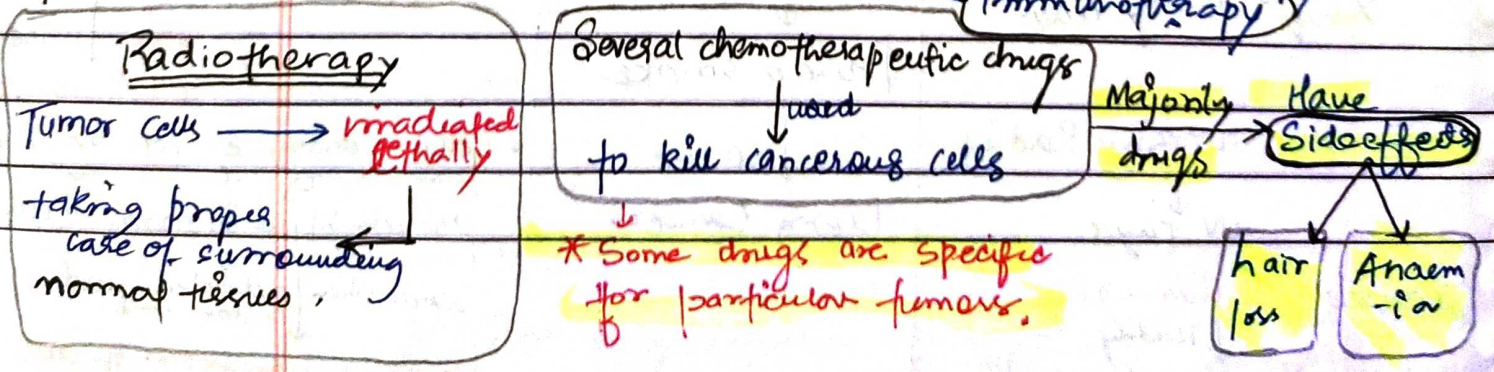 Immunotherapy
Radiotherapy
Tumor cells → irradiated
lethally
taking proper
care of surrounding
normal tissues.
Several chemotherapeutic drugs
↓ used
to kill cancerous cells
* Some drugs are specific
for particular tumors.
Majorly
drugs
Have
Sideeffects
hair
loss
Anaem
-ia